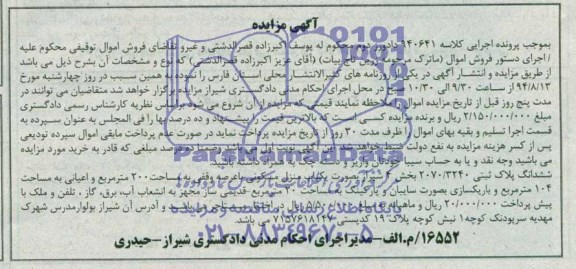 آگهی مزایده
بموجب پرونده اجرایی کلاسه ۹۴۰۶۴۱ دادورز دوم محکوم له یوسف اکبرزاده قصرالدشتی و غیرو تقاضای فروش اموال توقیفی محکوم علیه
/ اجرای دستور فروش اموال (ماترک مرحومه پروین تاج بیات) (آقای عزیز اکبرزاده قصرالدشتی) که نوع و مشخصات آن بشرح ذیل می باشد
از طریق مزایده و انتشار آگهی در یکی از روزنامه های کثیرالانتشار محلی استان فارس را نموده به همین سبب در روز چهارشنبه مورخ
۹۴/۸/۱۳ از ساعت ۹/۳۰ الی ۱۰/۳۰ صبح در محل اجرای احکام مدنی دادگستری شیراز مزایده برگزار خواهد شد متقاضیان می توانند در
مدت پنج روز قبل از تاریخ مزایده اموال را ملاحظه نمایند قیمتی که مزایده از آن شروع می شود براساس نظریه کارشناس رسمی دادگستری
مبلغ ۲/۱۵۰/۰۰۰/۰۰۰ ریال و برنده مزایده کسی است که بالاترین قیمت را پیشنهاد و ده درصد بها را فی المجلس به عنوان سپرده به
قسمت اجرا تسلیم و بقیه بهای اموال را ظرف مدت ۳۰ روز از تاریخ مزایده پرداخت نماید در صورت عدم پرداخت مابقی اموال سپرده تودیعی
پس از کسر هزینه مزایده به نفع دولت ضبط خواهد شد این آگهی نوبت اول می باشد وضمنا دو درصد مبلغی که قادر به خرید مورد مزایده
می باشید وجه نقد و یا به حساب سیبا خودتان واریز و
ششدانگ پلاک ثبتی ۲۰۷۰/۳۲۴۰ بخش ۴ شیراز بصورت یکباب منزل مسکونی باعرصه وقفی به مساحت ۲۰۰ مترمربع و اعیانی به مساحت
۱۰۴ مترمربع و باریکسازی بصورت سایبان و پارکینگ به مساحت ۴۰ مترمربع، قدیمی ساز، مجهز به انشعاب آب، برق، گاز، تلفن و ملک با
پیش پرداخت ۲۰/۰۰۰/۰۰۰ ریال و ماهیانه مبلغ ریال در اختیار مستاجر می باشد و آدرس آن شیراز بولوارمدرس شهرک
مهدیه سرپودنک کوچه۱ نبش کوچه پلاک ۱۹ کدپستی ۷۱۵۷۶۱۸۱۴۷ می باشد.
۱۶۵۵۲/م.الف-مدیراجرای احکام مدنی دادگستری شیراز-حیدری
ParsNamadData
پایگاه اطلاع رسانی مناقصه و مزایده
۰۲۱-۸۸۳۴۹۶۷۰-۵